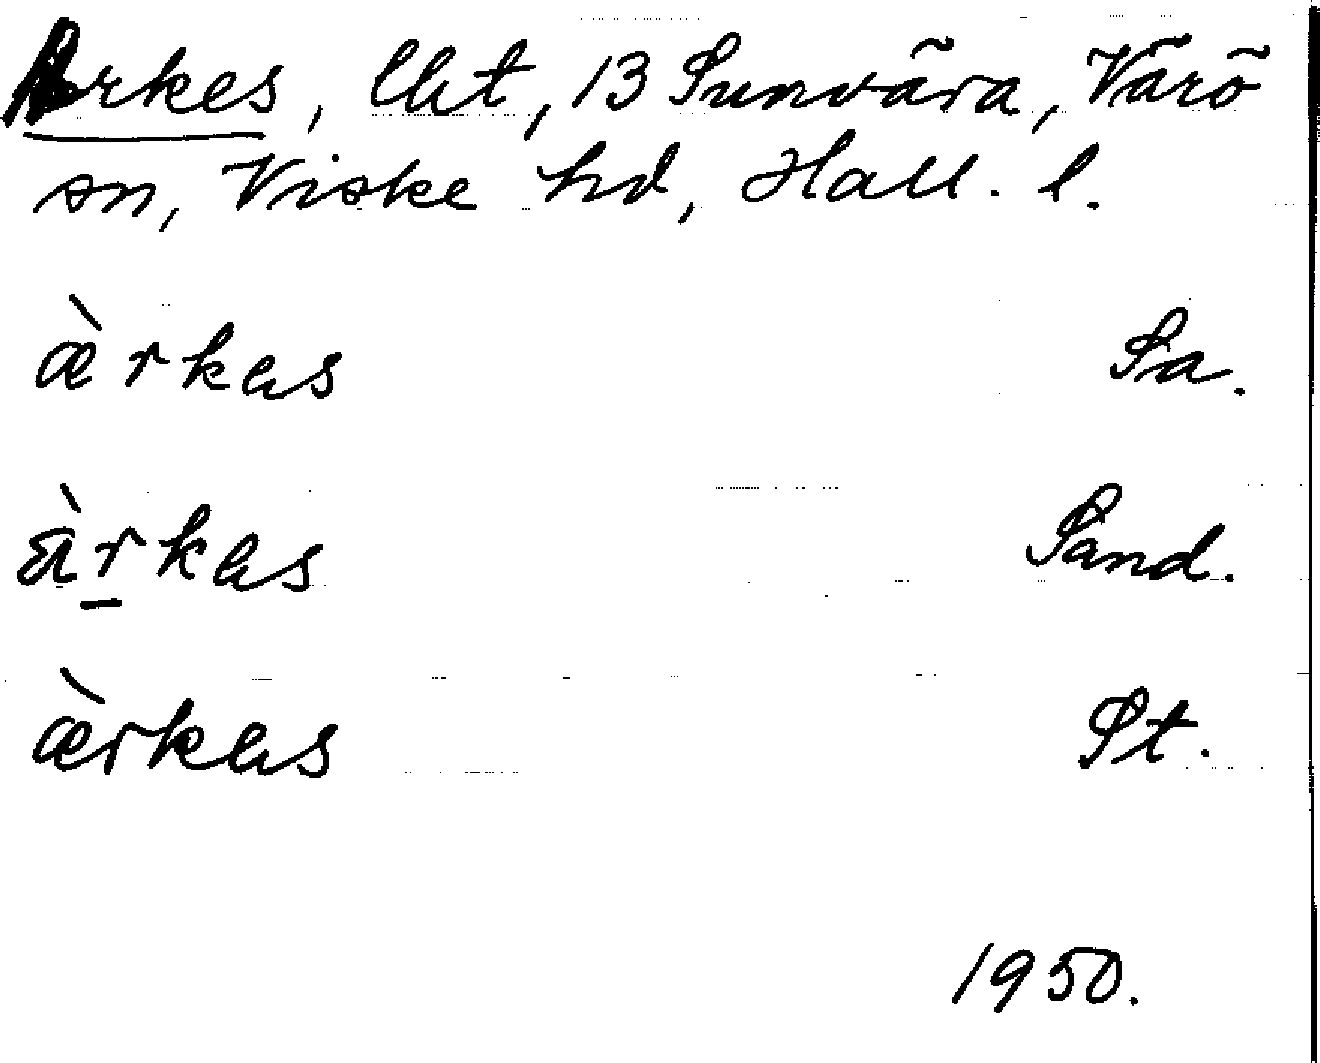 Arkes, lht, 13 Sunvära, Värö
sn, Viske hd, Hall. l.
æ̀rkas Sa.
àrkas Sand.
æ̀rkas St.
1950.